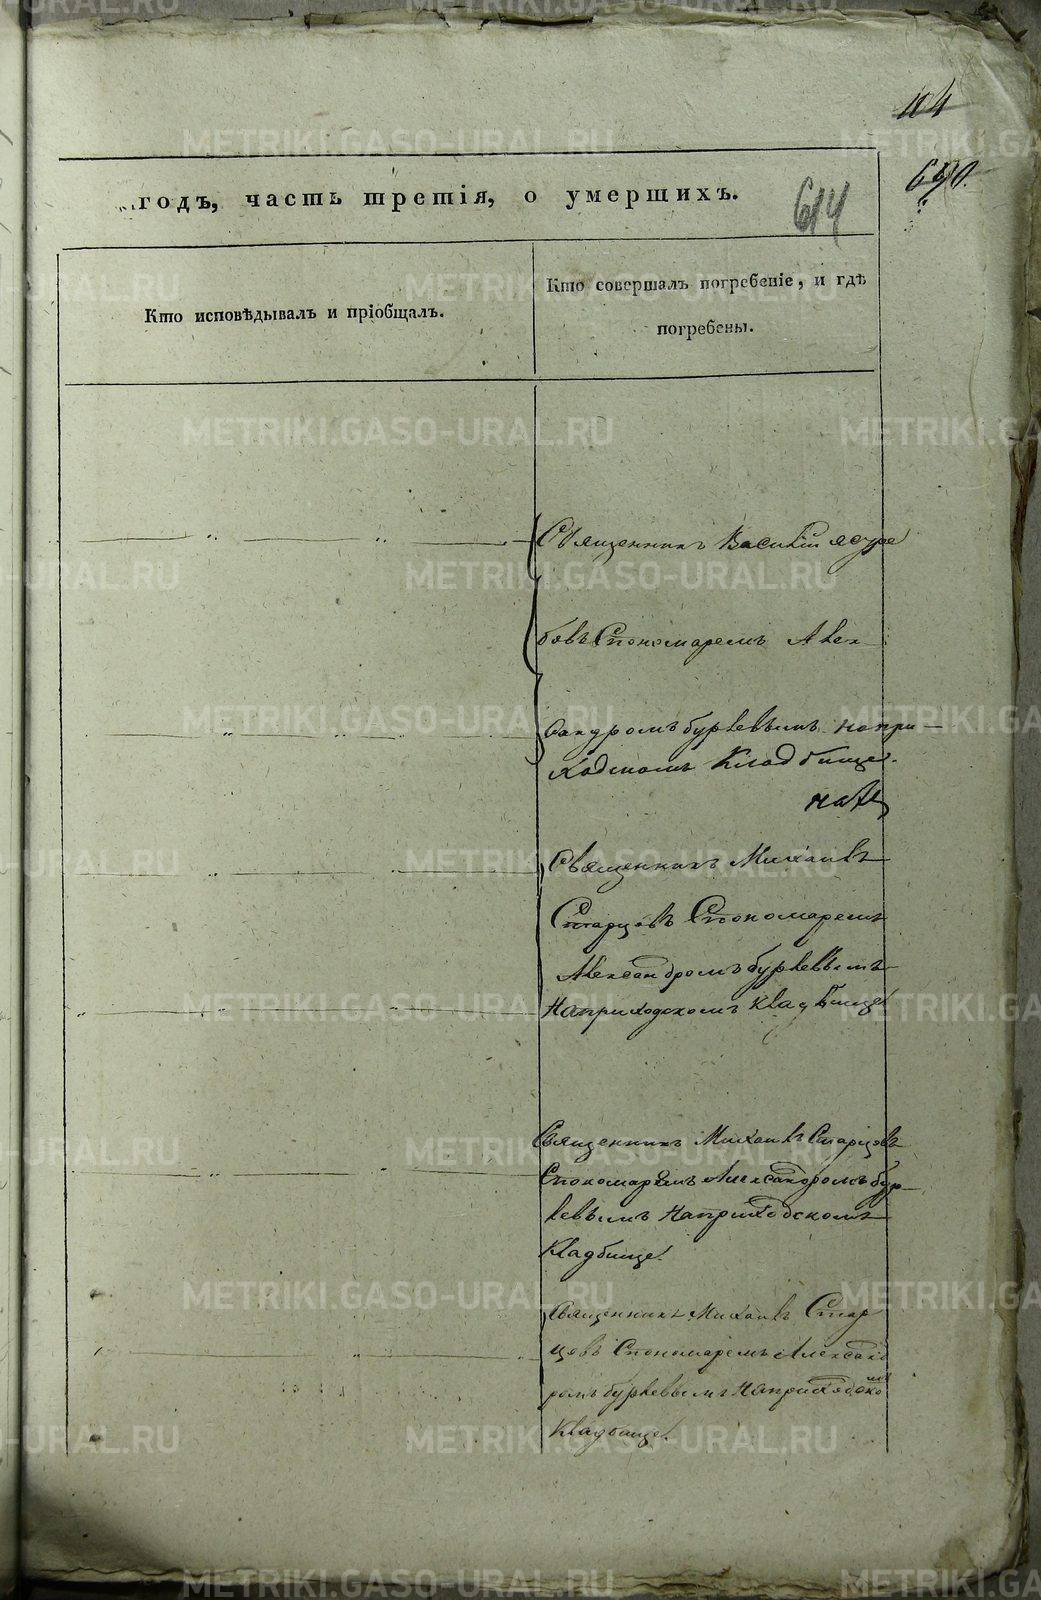 114
690.
614
годъ, часть третія, о умершихъ.
Кто исповѣдывалъ и пріобщалъ.
Кто совершалъ погребеніе, и гдѣ
погребены.
Священникъ Василій Ястре
бовъ Спономаремъ Алек
сандромъ бурлевымъ на при
ходскомъ Кладбище.
Священникъ Михаилъ
Старцовъ Спономаремъ
Александромъ бурлевымъ
На приходскомъ Кладбище
Священникъ Михаилъ Старцовъ
Спономаремъ Александромъ бур
левымъ На приходскомъ
Кладбище.
Священникъ Михаилъ Стар
цовъ Спономаремъ Александ
ромъ бурлевымъ На приходскомъ
Кладбище.
METRIKI.GASO-URAL.RU